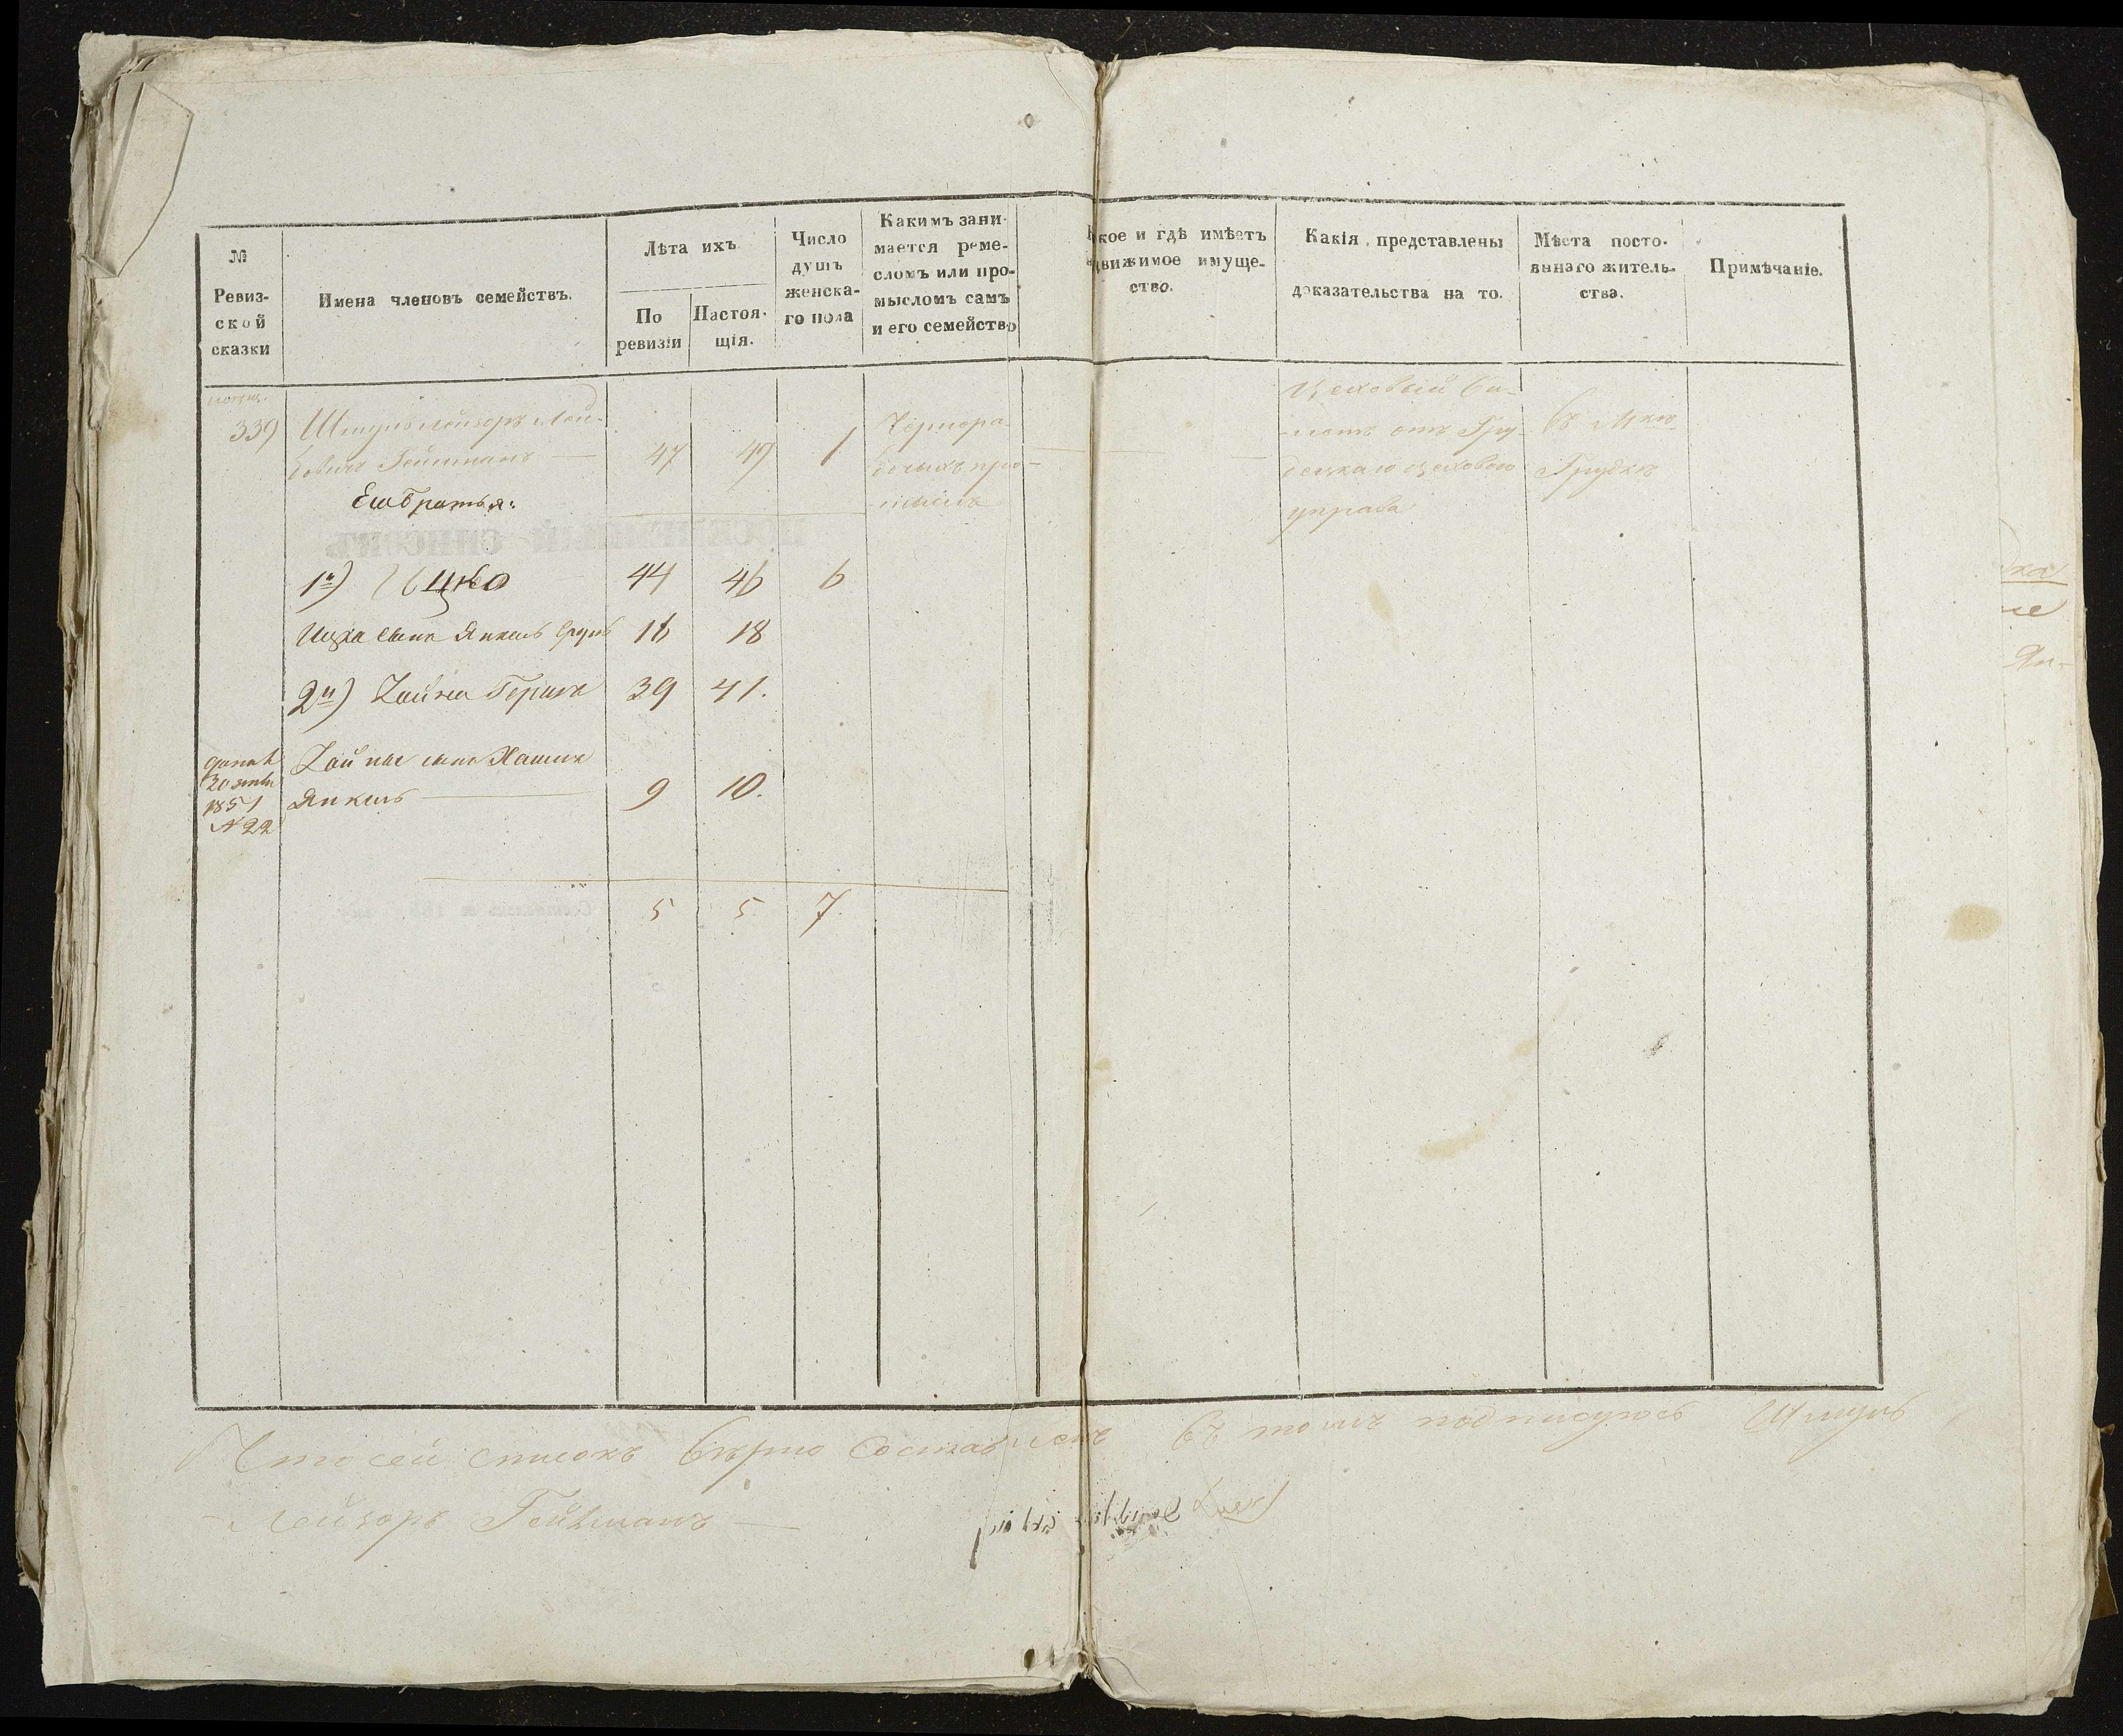 №
Ревиз-
ской
сказки
Имена членовъ семействъ.
Лѣта ихъ
По
ревизіи
Настоя-
щія.
Число
душъ
женска-
го пола
Какимъ зани-
мается реме-
сломъ или про-
мысломъ самъ
и его семейство
кое и гдѣ имѣетъ
движимое имуще-
ство.
Какія представлены
доказательства на то.
Мѣста посто-
яннаго житель-
ства.
Примѣчаніе.
339 Шмуль Лейзоръ Лей-
бовичъ Гейшманъ — 47 49 1
Чернора-
бочихъ про-
мысла
Цеховый би-
летъ отъ Гру-
децкаго цеховаго
управа
Въ Мкѣ
Грудкѣ
Его братья:
1й) Ицко 44 46 6
Ицка сынъ Янкель 16 18
2й) Гершъ 39 41.
сынъ
1851
№ 22
Янкель — 9 10.
5 5 7
Что сей списокъ вѣрно составленъ въ томъ подписуюсь Шмуль
Лейзоръ Гейшманъ —